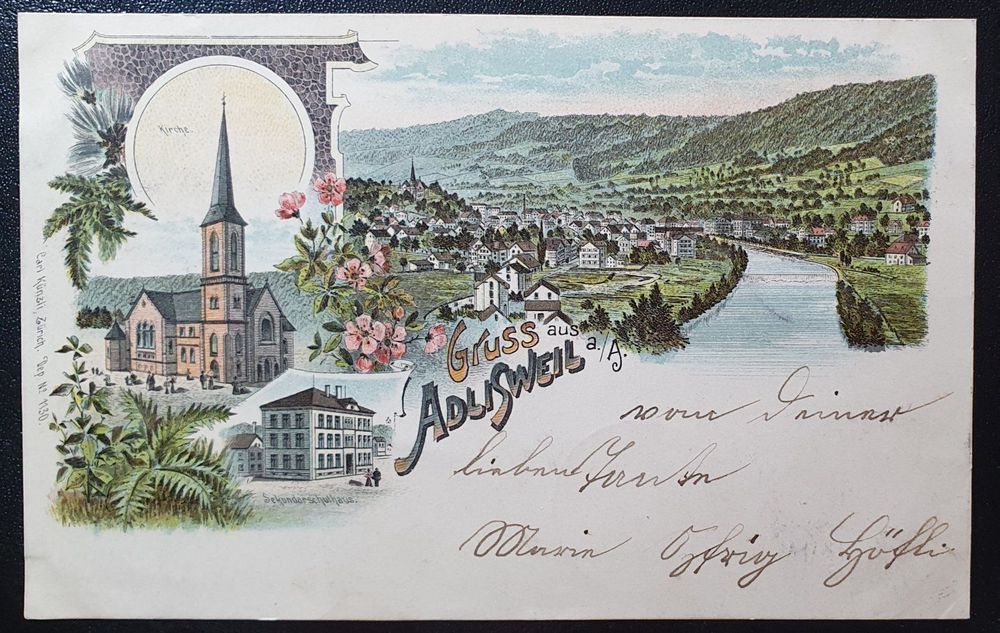 Kirche.
Gruss aus
Adlisweil
a./A.
Sekundarschulhaus.
Carl Künzli, Zürich. Dep. No 1130.
von Deiner
lieben Tante
Marie Höfli